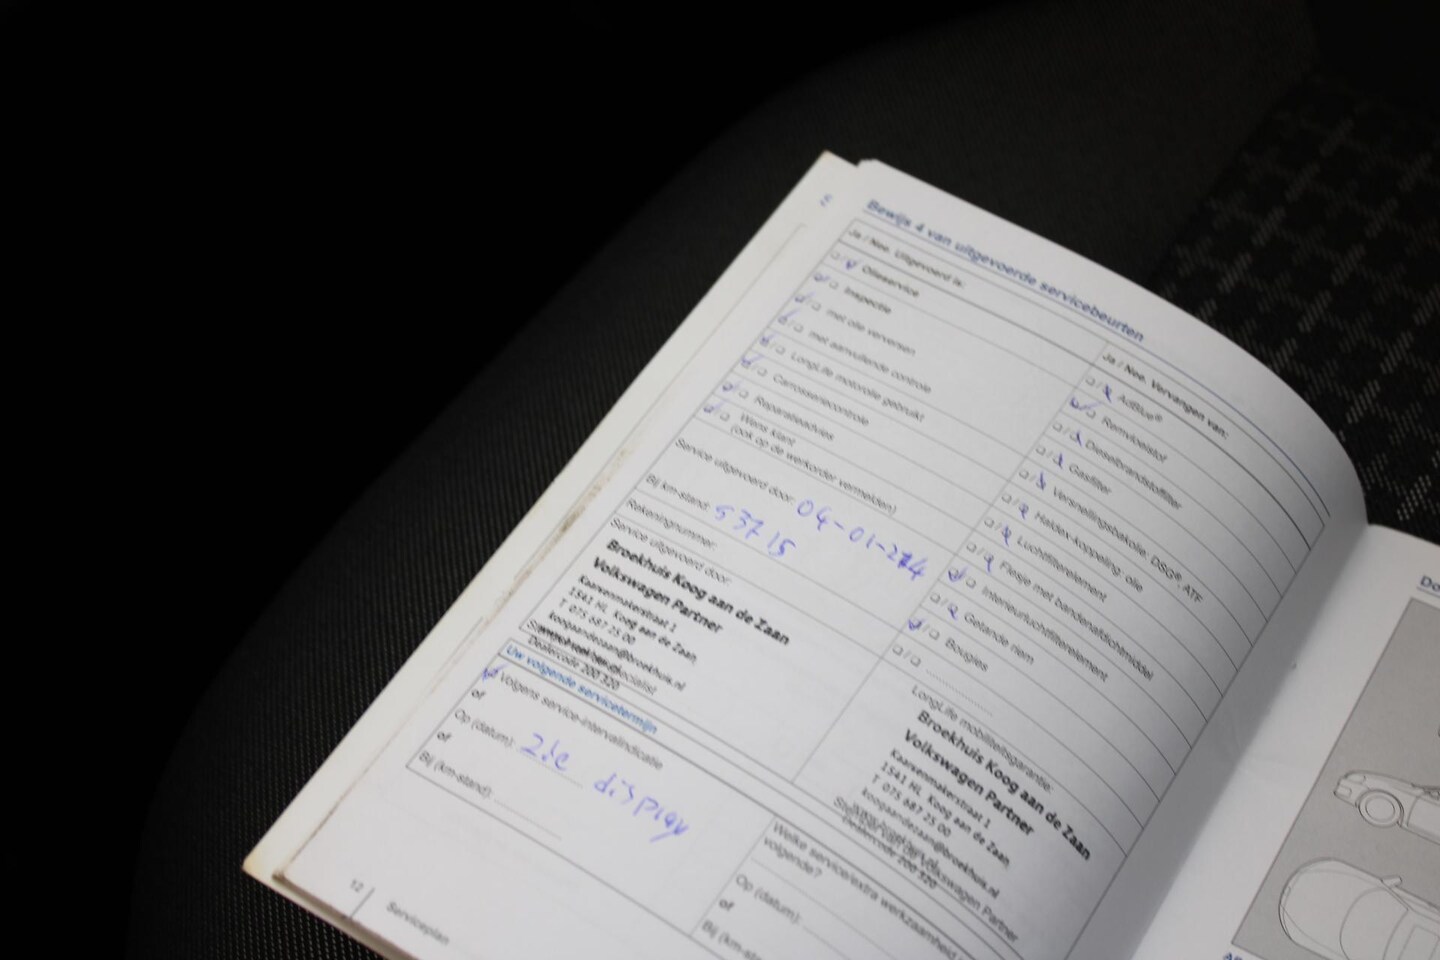 Bewijs 4 van uitgevoerde servicebeurten
Ja / Nee. Uitgevoerd is:
Olieservice
Inspectie
met olie verversen
met aanvullende controle
LongLife motorolie gebruikt
Carrosseriecontrole
Reparatieadvies
Wens klant
(ook op de werkorder vermelden)
Service uitgevoerd door:
Bij km-stand: 53715
Rekeningnummer:
Service uitgevoerd door:
Broekhuis Koog aan de Zaan
Volkswagen Partner
Kaarsenmakerstraat 1
1541 HL Koog aan de Zaan
T 075 687 25 00
koogaandezaan@broekhuis.nl
Dealercode 200 320
Uw volgende servicetermijn
Volgens service-intervalindicatie
of
Op (datum): Zie display
of
Bij (km-stand):
Ja / Nee. Vervangen van:
AdBlue®
Remvloeistof
Dieselbrandstoffilter
Gasfilter
Versnellingsbakolie: DSG®, ATF
Haldex-koppeling: olie
Luchtfilterelement
Flesje met bandenafdichtmiddel
Interieurluchtfilterelement
Getande riem
Bougies
LongLife mobiliteitsgarantie:
Broekhuis Koog aan de Zaan
Volkswagen Partner
Kaarsenmakerstraat 1
1541 HL Koog aan de Zaan
T 075 687 25 00
koogaandezaan@broekhuis.nl
Dealercode 200 320
Welke service/extra werkzaamheid
volgende?
Op (datum):
of
Bij (km-
12
Serviceplan